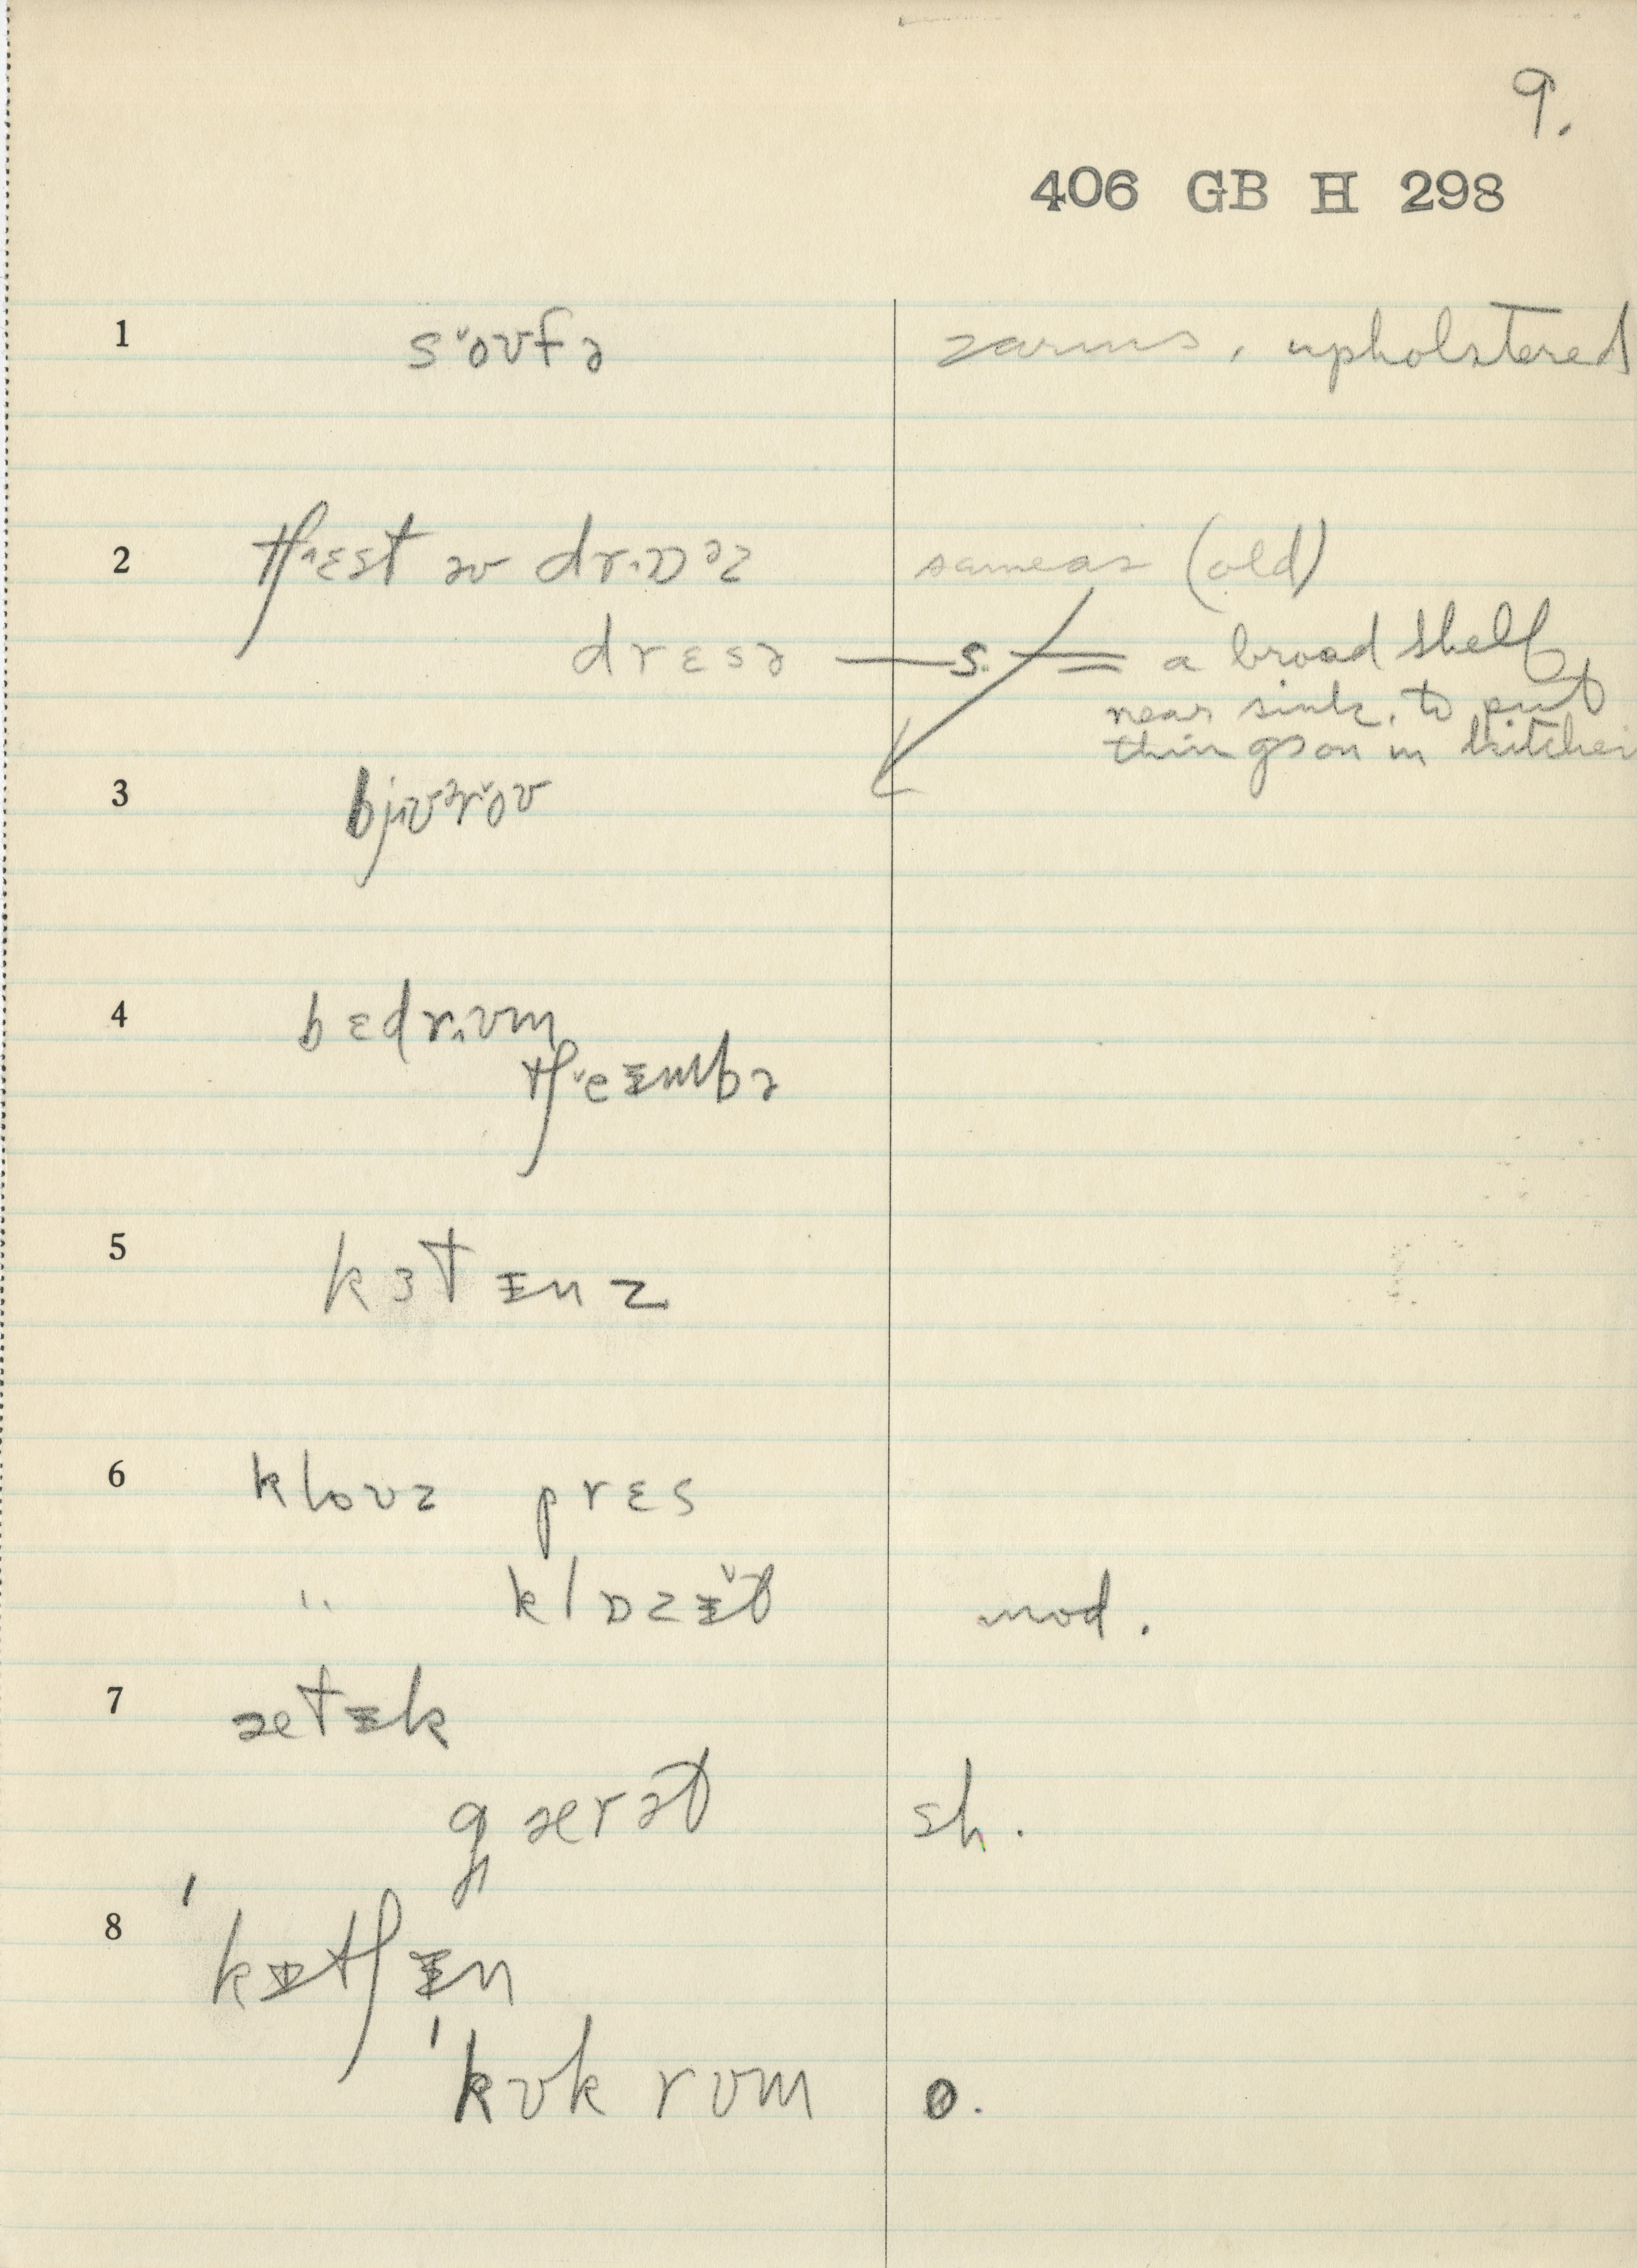 9.
406 GB H 298
1 s˅oʊfə 2 arms, upholstered
2 tʃ˄ɛst əv drɒˑəz same as (old)
drɛsə — s. = a broad shelf
near sink, to put
things on in kitchen
3 bjʊɜr˅oʊ
4 bɛdr˄ʊm
tʃ˅eɪmbə
5 kɜtɪnz
6 kloʊz prɛs
" klɒzɪt mod.
7 ætɪk
gærət sh.
8 ˈkɪtʃɪn
ˈkʊk rʊm o.